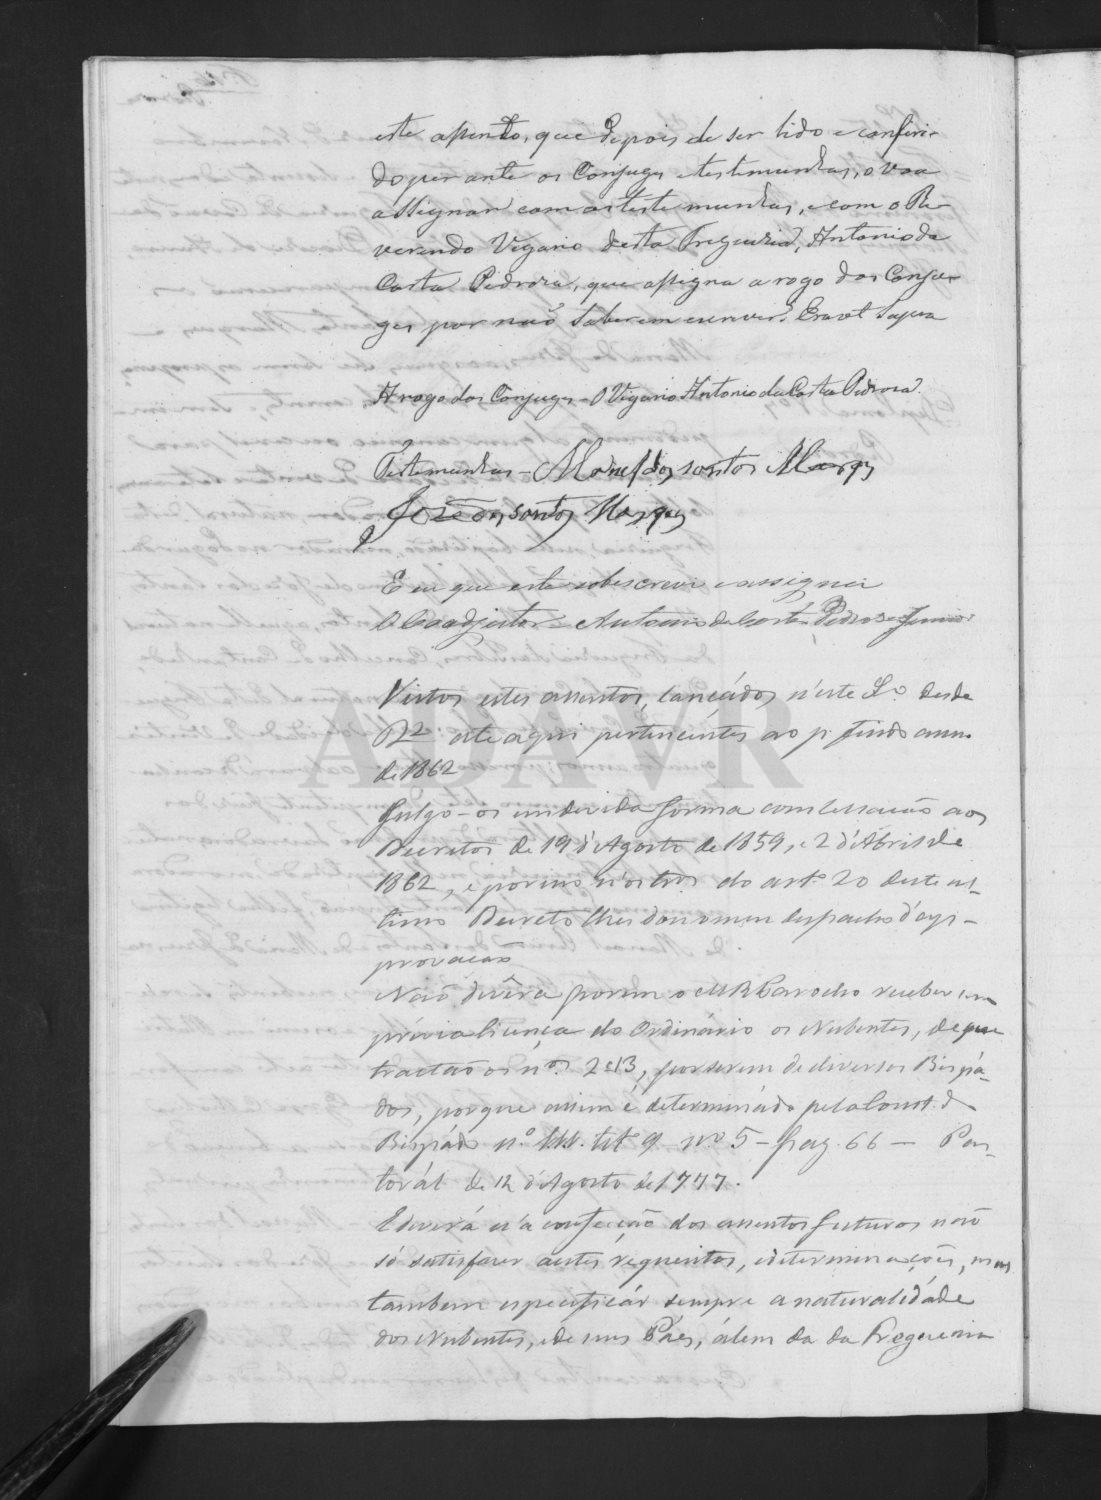 este assento, que depois de ser lido e conferi-
do perante os Conjuges e testemunhas, o vou
assignar com as testemunhas, e com o Re-
verendo Vigario desta Freguezia, Antonio da
Costa Pedroza, que assigna a rogo dos Conju-
ges por não saberem escrever. Era ut supra
A rogo dos Conjuges - O Vigario Antonio da Costa Pedroza.
Testemunhas - Manel dos santos Marqs
José dos santos Marques
E eu que este sobescrevi e assignei
O Coadjutor - Antonio da Costa Pedroza Junior
Vistos estes assentos, lançádos n'este L.o desde
até aqui pertencentes ao p. findo anno
de 1862
Julgo-os em devida forma com relação aos
Decretos de 19 d'Agosto de 1859, e 2 d'Abril de
1862, e por isso n'os termos do art.o 20 deste ul-
timo Decreto lhes dou o meu despacho d'ap-
provação
Não devêra porem o M R Parocho receber sem
prévia licença do Ordinário os Nubentes, de que
tractão os n.os 2 e 13, por serem de diversos Bispá-
dos, porque assim é determinádo pela Const. do
Bispádo n.o tit.o 9 n.o 5 - pag. 66 - Pas-
torál de 12 d'Agosto de 1777.
E deverá n'a confecção dos assentos futuros não
só satisfazer a estes requesitos, e determinações, mas
tambem especificár sempre a naturalidáde
dos Nubentes, e de seus Páes, álem da da Freguesia
ADAVR